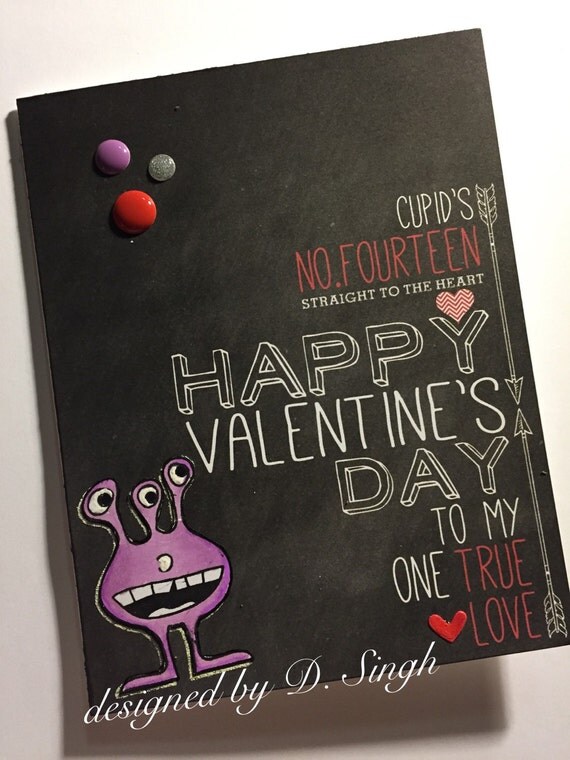 CUPID'S
NO.FOURTEEN
STRAIGHT TO THE HEART
HAPPY
VALENTINE'S
DAY
TO MY
ONE TRUE
LOVE
designed by D. Singh